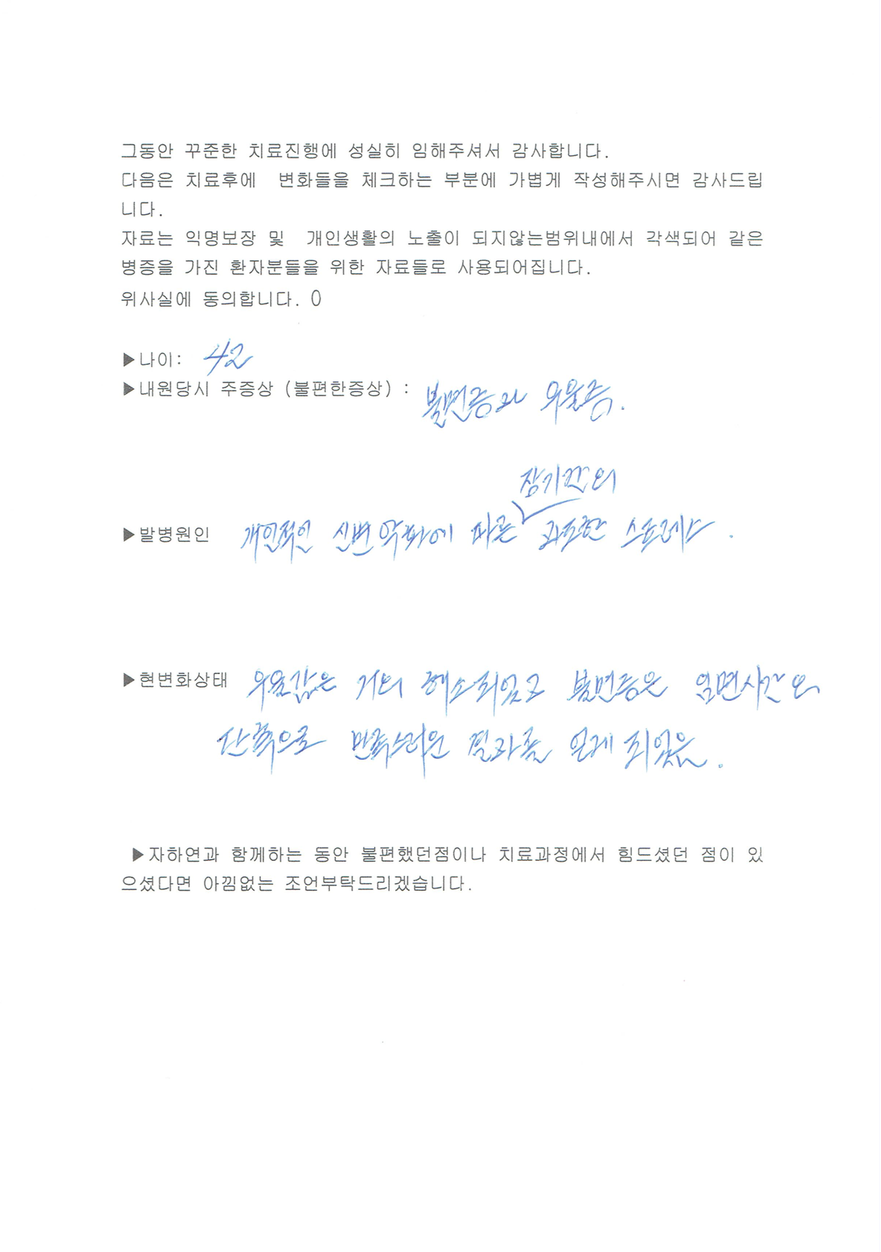 그동안 꾸준한 치료진행에 성실히 임해주셔서 감사합니다.
다음은 치료후에 변화들을 체크하는 부분에 가볍게 작성해주시면 감사드립
니다.
자료는 익명보장 및 개인생활의 노출이 되지않는범위내에서 각색되어 같은
병증을 가진 환자분들을 위한 자료들로 사용되어집니다.
위사실에 동의합니다. 0
▶나이: 42
▶내원당시 주증상 (불편한증상) : 불면증과 우울증.
장기간의
▶발병원인 개인적인 신변 악화에 따른 과도한 스트레스.
▶현변화상태 우울감은 거의 해소되었고 불면증은 입면시간의
단축으로 만족스러운 결과를 얻게 되었음.
▶자하연과 함께하는 동안 불편했던점이나 치료과정에서 힘드셨던 점이 있
으셨다면 아낌없는 조언부탁드리겠습니다.